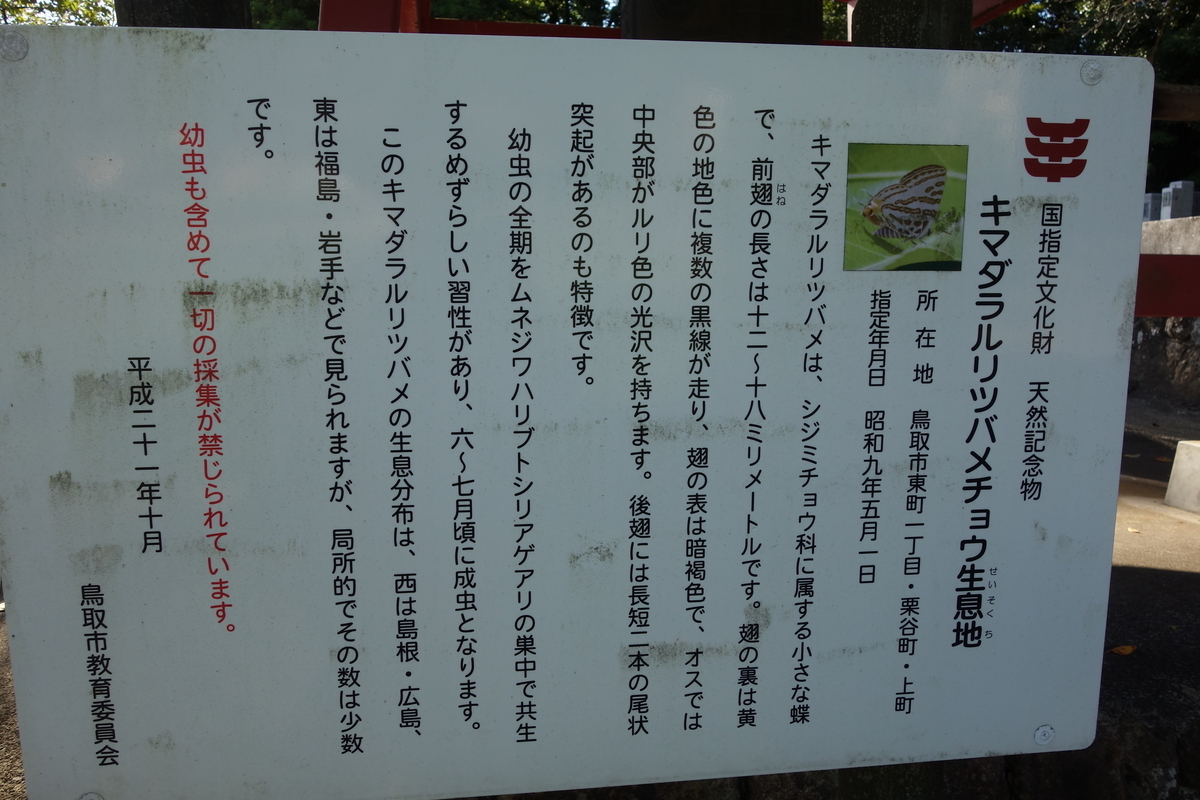 国指定文化財　天然記念物
キマダラルリツバメチョウ生息地
せいそくち
所在地　鳥取市東町一丁目・栗谷町・上町
指定年月日　昭和九年五月一日
キマダラルリツバメは、シジミチョウ科に属する小さな蝶
で、前翅の長さは十二〜十八ミリメートルです。翅の裏は黄
はね
色の地色に複数の黒線が走り、翅の表は暗褐色で、オスでは
中央部がルリ色の光沢を持ちます。後翅には長短二本の尾状
突起があるのも特徴です。
幼虫の全期をムネジワハリブトシリアゲアリの巣中で共生
するめずらしい習性があり、六〜七月頃に成虫となります。
このキマダラルリツバメの生息分布は、西は島根・広島、
東は福島・岩手などで見られますが、局所的でその数は少数
です。
幼虫も含めて一切の採集が禁じられています。
平成二十一年十月
鳥取市教育委員会